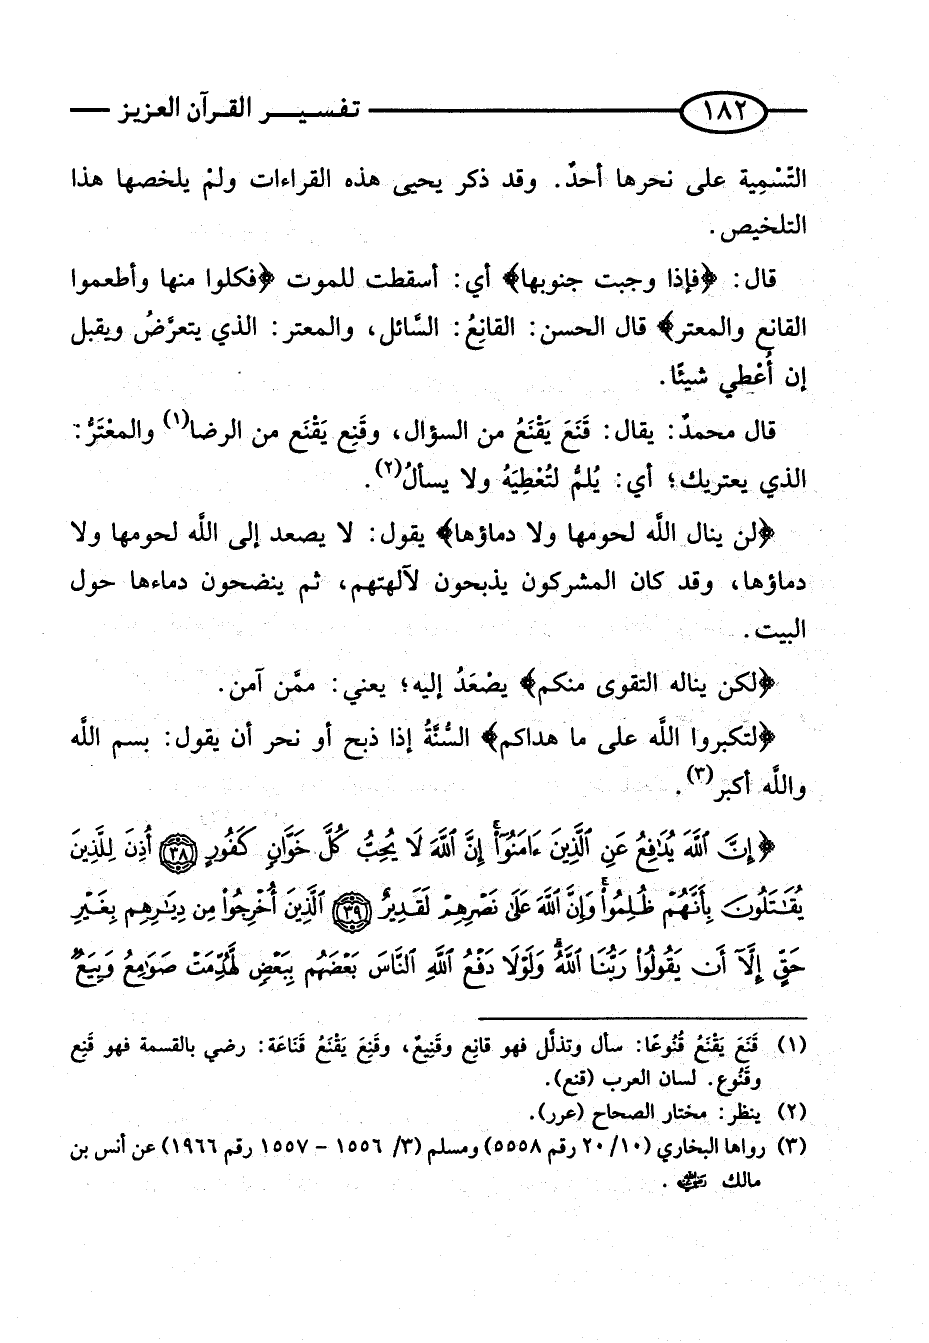 ١٨٢ تفسير القرآن العزيز
التَّسْمِية على نحرها أحدٌ. وقد ذكر يحيى هذه القراءات ولمْ يلخصها هذا
التلخيص.
قال: ﴿فإذا وجبت جنوبها﴾ أي: أسقطت للموت ﴿فكلوا منها وأطعموا
القانع والمعتر﴾ قال الحسن: القانِعُ: السَّائل، والمعتر: الذي يتعرَّضُ ويقبل
إن أُعْطي شيئًا.
قال محمدٌ: يقال: قَنَعَ يَقْنَعُ من السؤال، وقَنِع يَقْنَع من الرضا(١) والمعْتَرُّ:
الذي يعتريك؛ أي: يُلمُّ لتُعْطِيَهُ ولا يسألُ(٢).
﴿لن ينال اللَّه لحومها ولا دماؤها﴾ يقول: لا يصعد إلى اللَّه لحومها ولا
دماؤها، وقد كان المشركون يذبحون لآلهتهم، ثم ينضحون دماءها حول
البيت.
﴿لكن يناله التقوى منكم﴾ يصْعَدُ إليه؛ يعني: ممَّن آمن.
﴿لتكبروا اللَّه على ما هداكم﴾ السُّنَّةُ إذا ذبح أو نحر أن يقول: بسم اللَّه
واللَّه أكبر(٣).
﴿إِنَّ ٱللَّهَ يُدَٰفِعُ عَنِ ٱلَّذِينَ ءَامَنُوٓا۟ۗ إِنَّ ٱللَّهَ لَا يُحِبُّ كُلَّ خَوَّانٍ كَفُورٍ ٣٨ أُذِنَ لِلَّذِينَ
يُقَٰتَلُونَ بِأَنَّهُمْ ظُلِمُوا۟ۚ وَإِنَّ ٱللَّهَ عَلَىٰ نَصْرِهِمْ لَقَدِيرٌ ٣٩ ٱلَّذِينَ أُخْرِجُوا۟ مِن دِيَٰرِهِم بِغَيْرِ
حَقٍّ إِلَّآ أَن يَقُولُوا۟ رَبُّنَا ٱللَّهُۗ وَلَوْلَا دَفْعُ ٱللَّهِ ٱلنَّاسَ بَعْضَهُم بِبَعْضٍ لَّهُدِّمَتْ صَوَٰمِعُ وَبِيَعٌ
(١) قَنَعَ يَقْنَعُ قُنُوعًا: سأل وتذلَّل فهو قانِع وقَنِيعٌ، وقَنِعَ يَقْنَعُ قَنَاعَة: رضي بالقسمة فهو قَنِع
وقَنُوع. لسان العرب (قنع).
(٢) ينظر: مختار الصحاح (عرر).
(٣) رواها البخاري (١٠/ ٢٠ رقم ٥٥٥٨) ومسلم (٣/ ١٥٥٦ - ١٥٥٧ رقم ١٩٦٦) عن أنس بن
مالك رضي الله عنه.